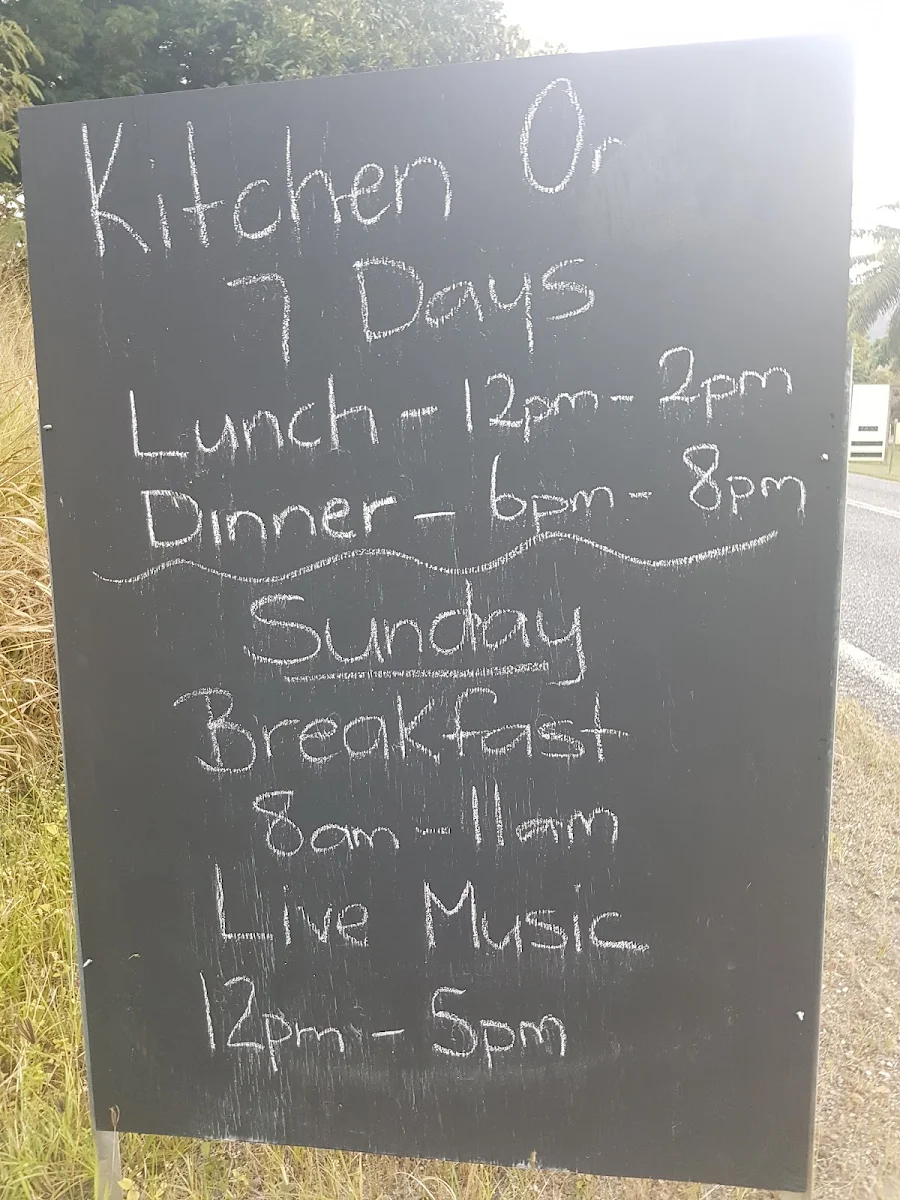 Kitchen Or
7 Days
Lunch - 12pm - 2pm
Dinner - 6pm - 8pm
Sunday
Breakfast
8am - 11am
Live Music
12pm - 5pm